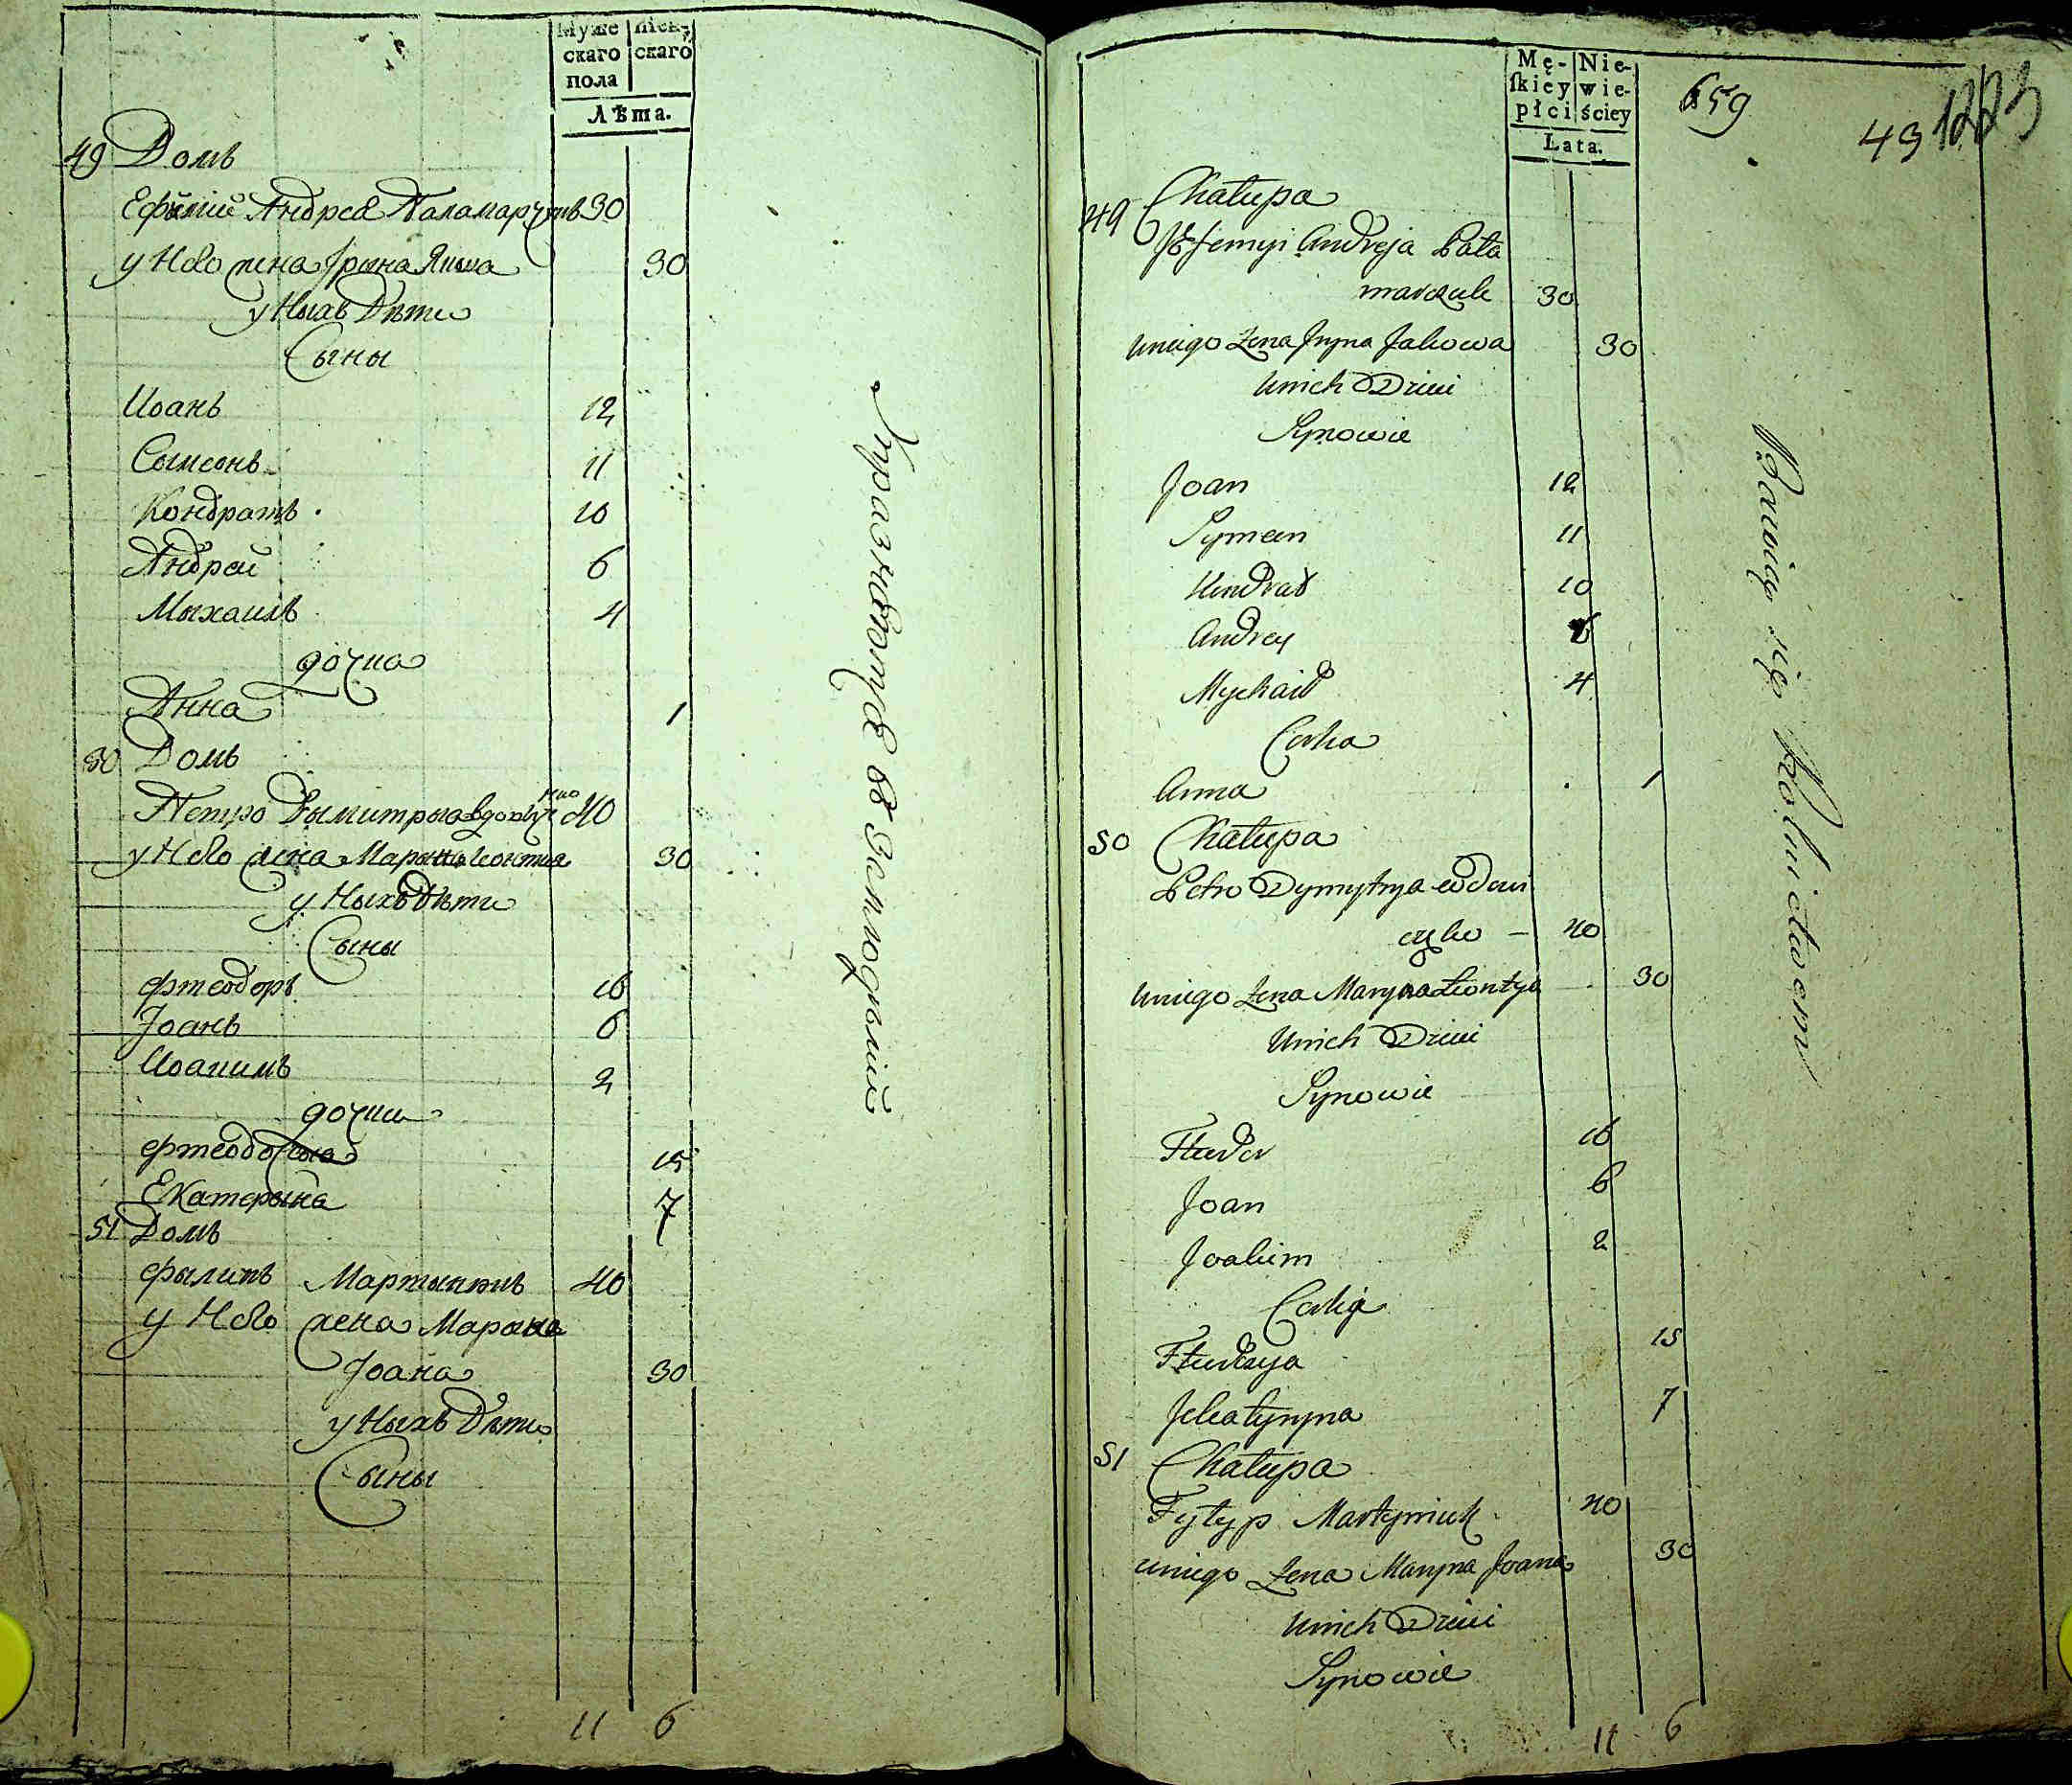 Муже
скаго
пола
скаго
Лѣта.
49 Домъ
Ефымій Андрея Паламарчукъ 30
у Него жена Ірына Якова 30
у Ныхъ Дѣти
Сыны
Иоанъ 12
Сымеонъ 11
Кондратъ 10
Андрей 6
Мыхаилъ 4
дочка
Анна 1
50 Домъ
Петро Дымитрыя 40
у Него жена Марына Леонтия 30
у Ныхъ Дѣти
Сыны
Фтеодоръ 16
Іоанъ 6
Иоакимъ 2
дочки
Фтеодосыа 15
Екатерына 7
51 Домъ
Фылипъ Мартынюкъ 40
у Него жена Марына
Іоана 30
у Ныхъ Дѣти
Сыны
11 6
Упражняются въ Земледѣлий
Mę-
skiey
płci
Nie-
wie-
ściey
Lata.
659
49
49 Chałupa
Jeftemyi Andreja Pała
marczuk 30
u niego Żena Iryna Jakowa 30
U nich Dzieci
Synowie
Joan 12
Symeon 11
Kindrat 10
Andrey 6
Mychaił 4
Corka
Anna 1
50 Chałupa
Petro Dymytrya wdowi
czko - 40
u niego Żena Maryna Leontya 30
U nich Dzieci
Synowie
Fteodor 16
Joan 6
Joakim 2
Corki
Fteodosya 15
Jekatyryna 7
51 Chałupa
Fyłyp Martyniuk 40
u niego Żena Maryna Joana 30
U nich Dzieci
Synowie
11 6
Bawią się Rolnictwem